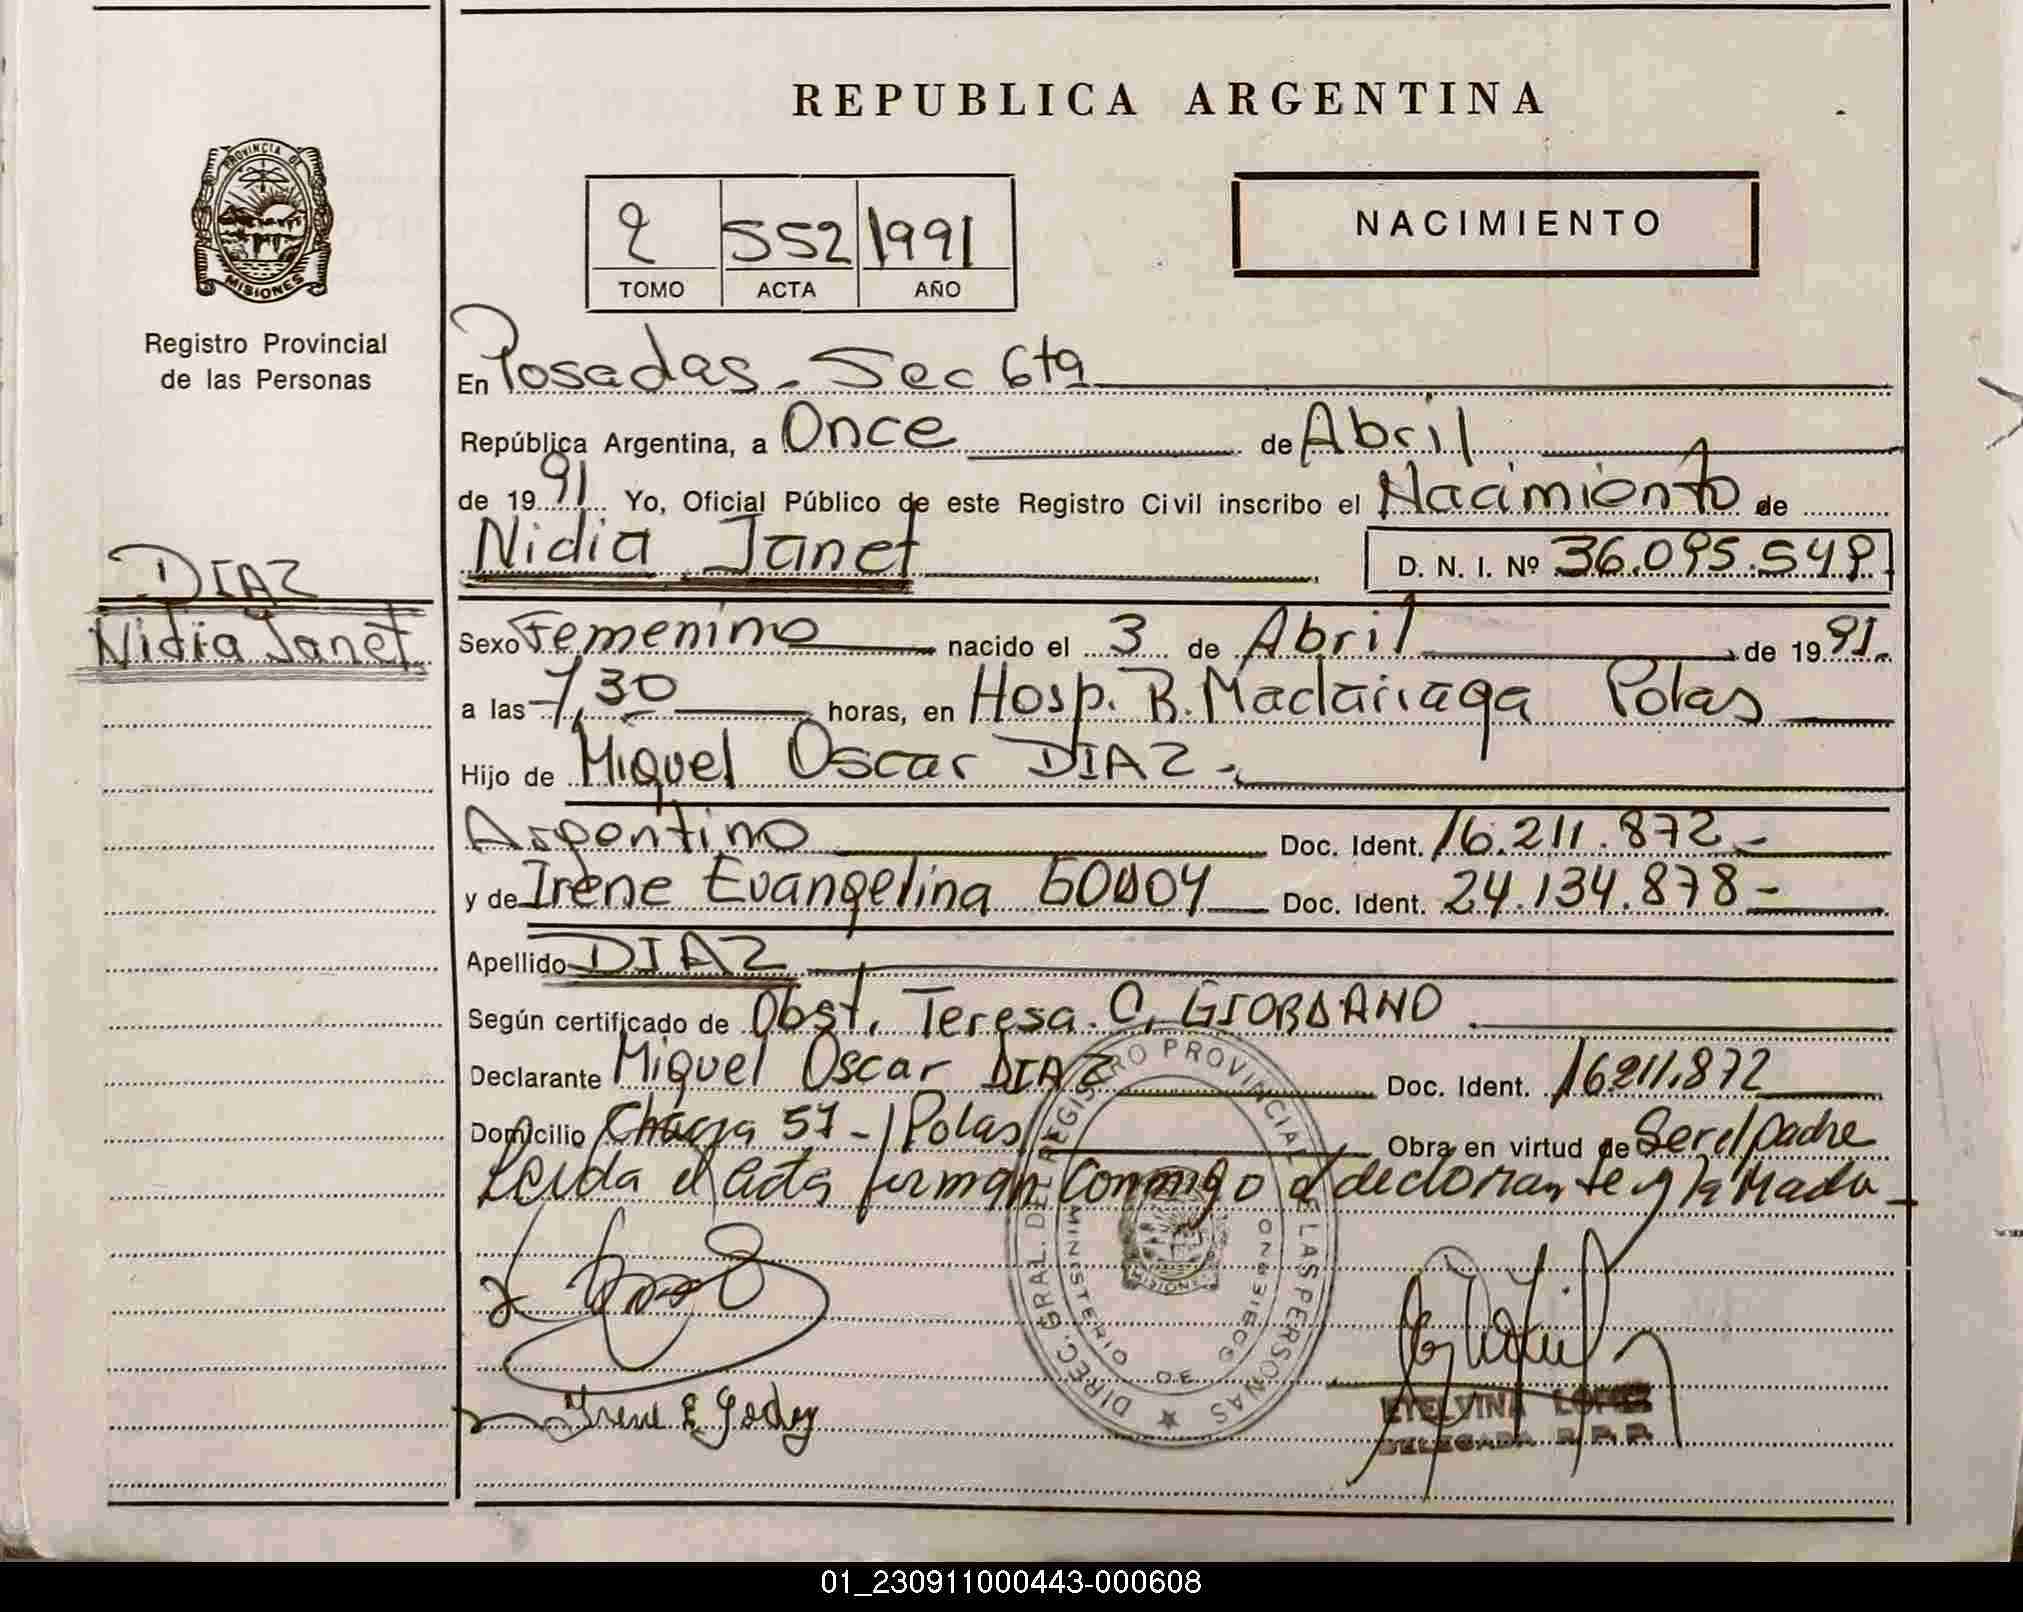 REPUBLICA ARGENTINA
PROVINCIA DE
MISIONES
Registro Provincial
de las Personas
2 552 1991
TOMO ACTA AÑO
NACIMIENTO
En Posadas - Sec 6ta
República Argentina, a Once de Abril
de 1991 Yo, Oficial Público de este Registro Civil inscribo el Nacimiento de
Nidia Janet D. N. I. Nº 36.095.549
DIAZ
Nidia Janet
Sexo Femenino nacido el 3 de Abril de 1991.
a las 7,30 horas, en Hosp. R. Madariaga Pdas
Hijo de Miguel Oscar DIAZ -
Argentino Doc. Ident. 16.211.872 -
y de Irene Evangelina GODOY Doc. Ident. 24.134.878 -
Apellido DIAZ
Según certificado de Obst. Teresa. C. GIORDANO
Declarante Miguel Oscar DIAZ Doc. Ident. 16211.872
Domicilio Chacra 57 - Pdas Obra en virtud de Ser el padre
Leida el acta firman conmigo el declarante y la Madre
DIREC. GRAL. DEL REGISTRO PROVINCIAL DE LAS PERSONAS
MINISTERIO DE GOBIERNO
Irene E Godoy
ETELVINA LOPEZ
DELEGADA R. P. P.
01_230911000443-000608